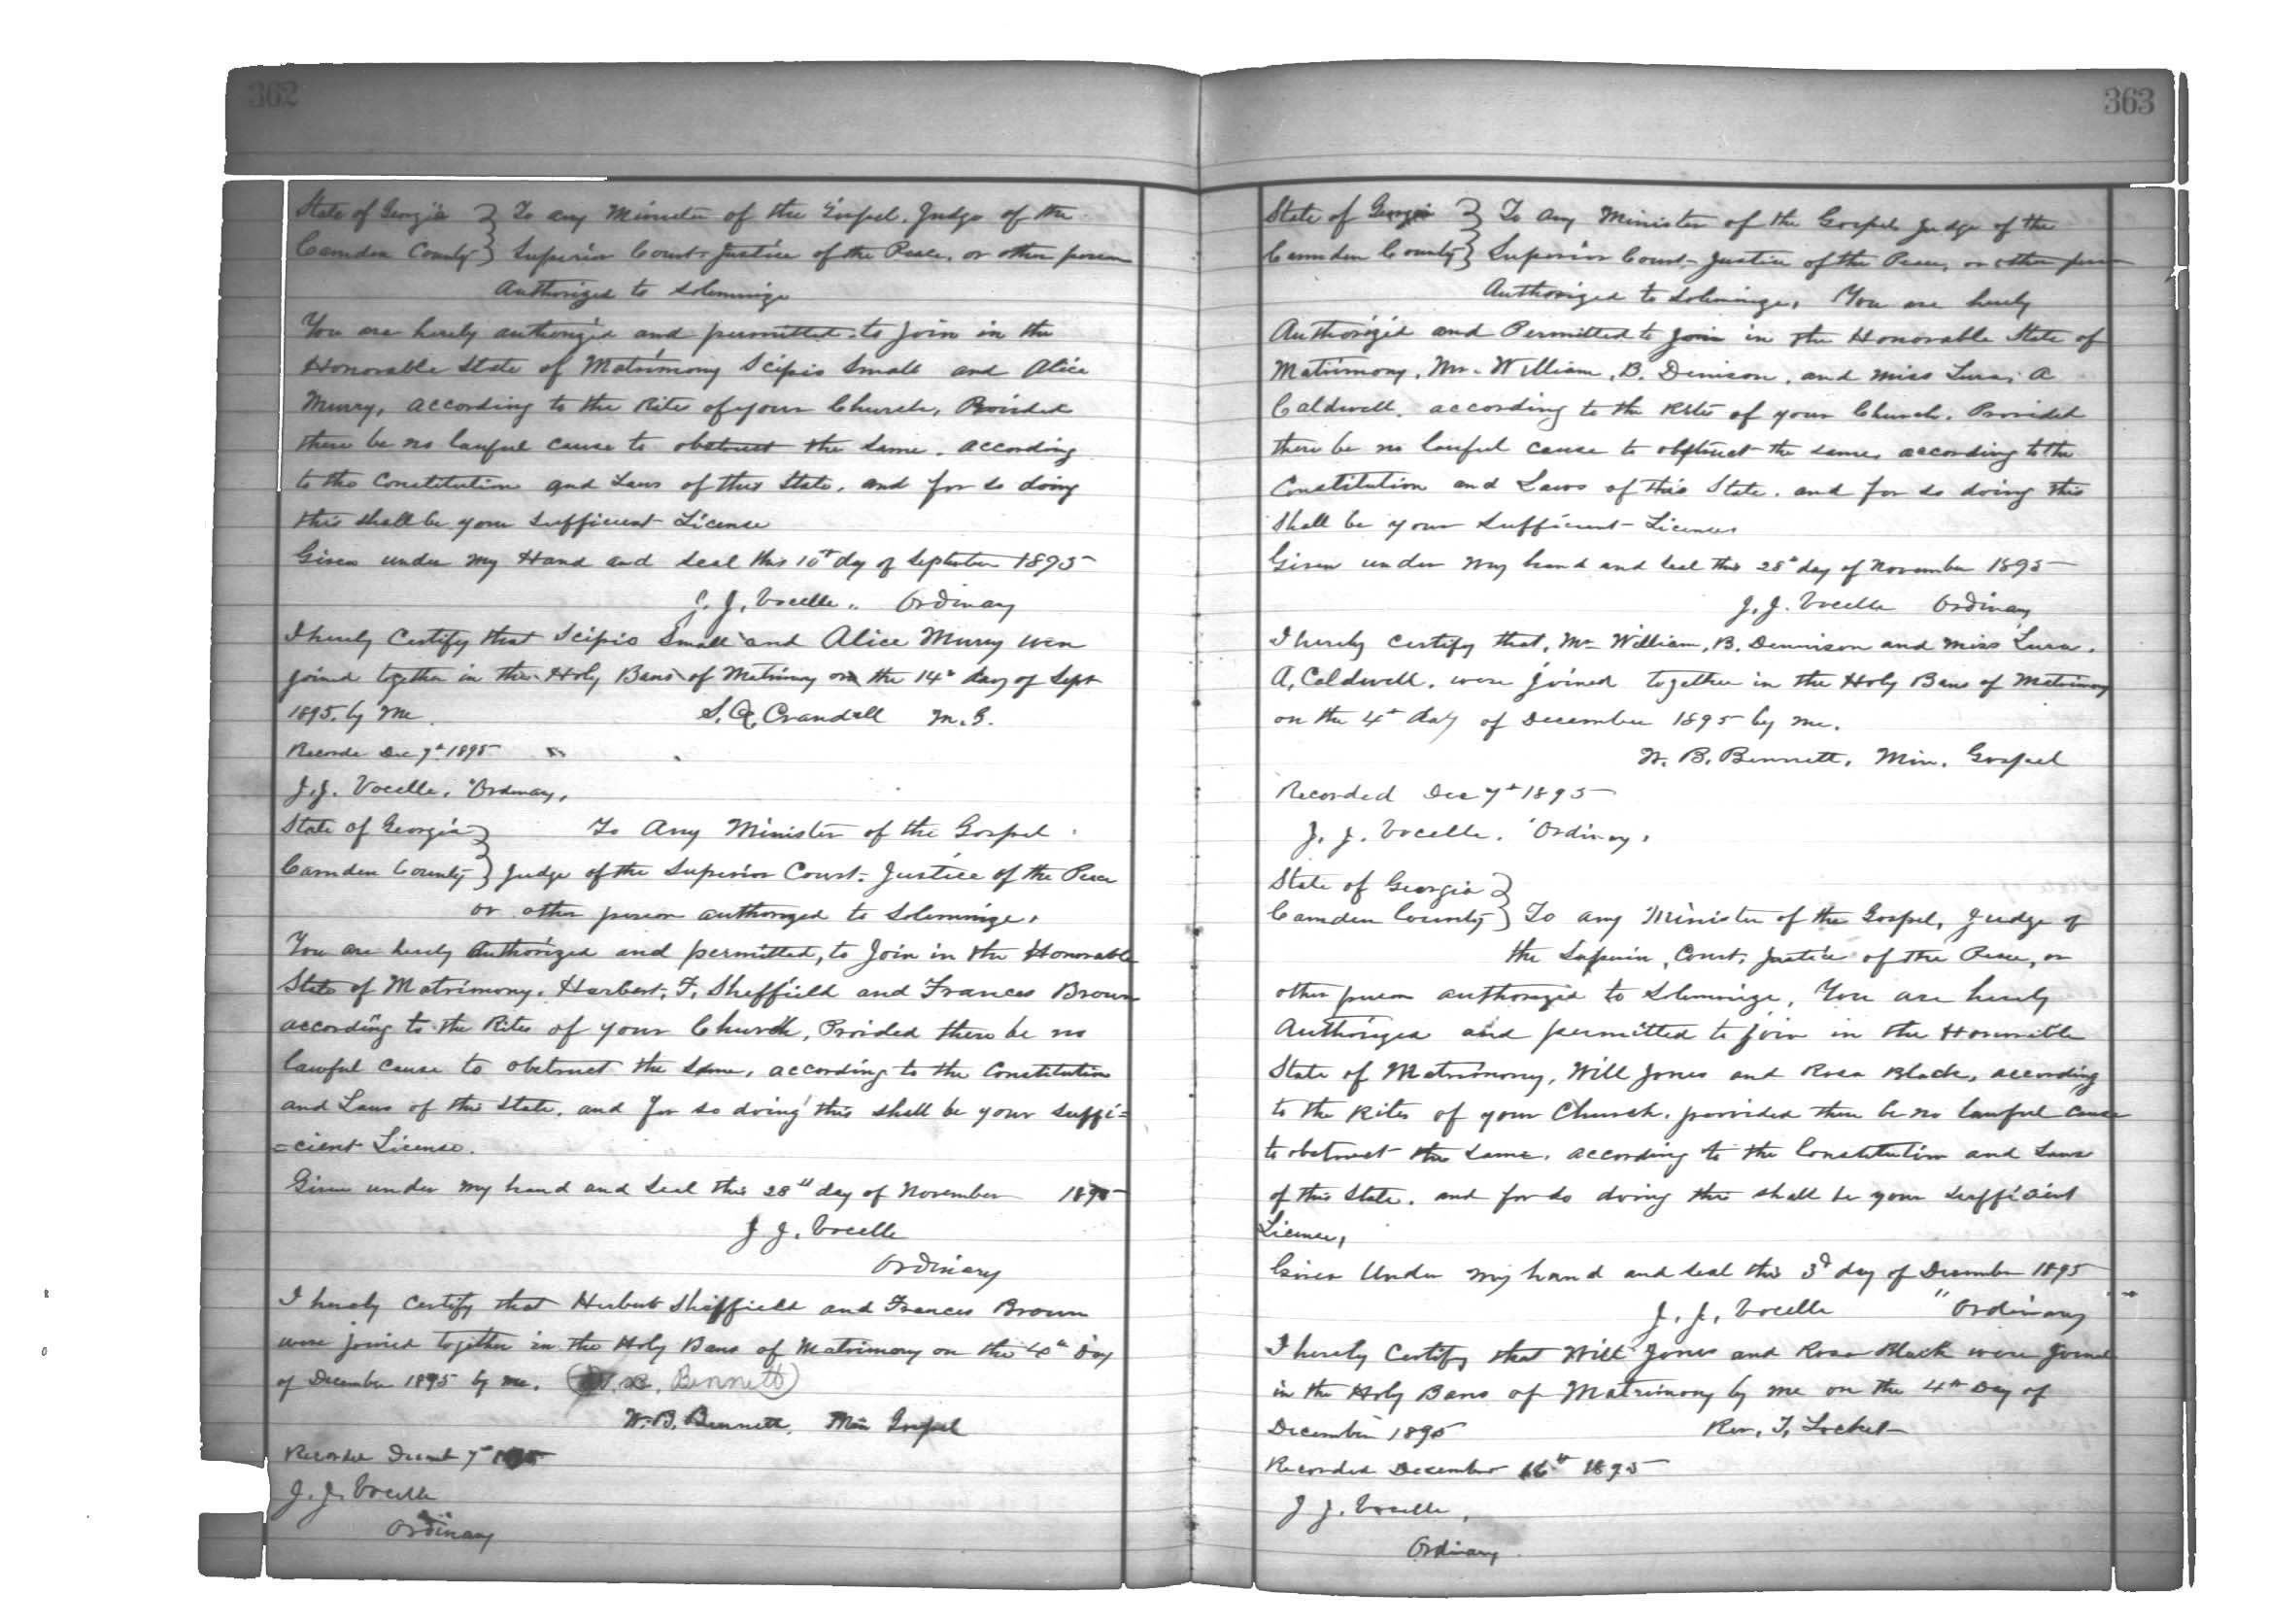 362
State of Georgia } To any Minister of the Gospel, Judge of the
Camden County } Superior Court Justice of the Peace, or other person
Authorized to solemnize
You are hereby authorized and permitted to join in the
Honorable State of Matrimony Scipio Small and Alice
Murry, according to the Rites of your Church, Provided
there be no lawful cause to obstruct the same. according
to the Constitution and Laws of this State. and for so doing
this shall be your sufficient License
Given under my Hand and seal this 10th day of September 1895
J. J. Vocelle, Ordinary
I hereby Certify that Scipio Small and Alice Murry were
joined together in the Holy Bans of Matrimony on the 14th day of Sept
1895. by Me. S. Q. Crandall M. G.
Recorde Dec 7th 1895
J. J. Vocelle, Ordinary,
State of Georgia } To Any Minister of the Gospel
Camden County } Judge of the Superior Court. Justice of the Peace
or other person authorized to Solemnize.
You are hereby Authorized and permitted, to Join in the Honorable
State of Matrimony. Herbert, F, Sheffield and Frances Brown
according to the Rites of your Church, Provided there be no
lawful cause to obstruct the same, according to the Constitution
and Laws of this State. and for so doing this shall be your suffi=
=cient License.
Given under my hand and seal this 28th day of November 1895
J J. Vocelle
Ordinary
I hereby certify that Herbert Sheffield and Frances Brown
were joined together in the Holy Bans of Matrimony on the 4th Day
of December 1895 by me. (W. B. Bennett)
W. B. Bennett, Min Gospel
Recorded 7th 1895
J. J. Vocelle
Ordinary
363
State of Georgia } To Any Minister of the Gospel, Judge of the
Camden County } Superior Court Justice of the Peace, or other person
Authorized to Solemnize, You are hereby
Authorized and Permitted to Join in the Honorable State of
Matrimony, Mr. William, B. Denison, and Miss Lura, A
Caldwell. according to the Rites of your Church. Provided
there be no lawful cause to obstruct the same, according to the
Constitution and Laws of this State. and for so doing this
Shall be your Sufficient License
Given under my hand and seal this 28th day of November 1895
J. J. Vocelle Ordinary
I hereby Certify that, Mr William, B. Dennison and Miss Lura.
A, Caldwell. were joined together in the Holy Bans of Matrimony
on the 4th day of December 1895 by me.
W. B. Bennett, Min. Gospel
Recorded Dec 7th 1895
J. J. Vocelle. Ordinary,
State of Georgia }
Camden County } To any Minister of the Gospel, Judge of
the Superior, Court, Justice of the Peace, or
other person authorized to Solemnize, You are hereby
Authorized and permitted to join in the Honorable
State of Matrimony, Will Jones and Rosa Black, according
to the Rites of your Church. provided there be no lawful cause
to obstruct the same. according to the Constitution and Laws
of this State. and for so doing this shall be your Sufficient
License,
Given Under my hand and seal this 3d day of December 1895
J. J. Vocelle "Ordinary
I hereby Certify that Will Jones and Rosa Black were joined
in the Holy Bans of Matrimony by me on the 4th Day of
December 1895 Rev. T, Locket
Recorded December 16th 1895
J J. Vocelle,
Ordinary